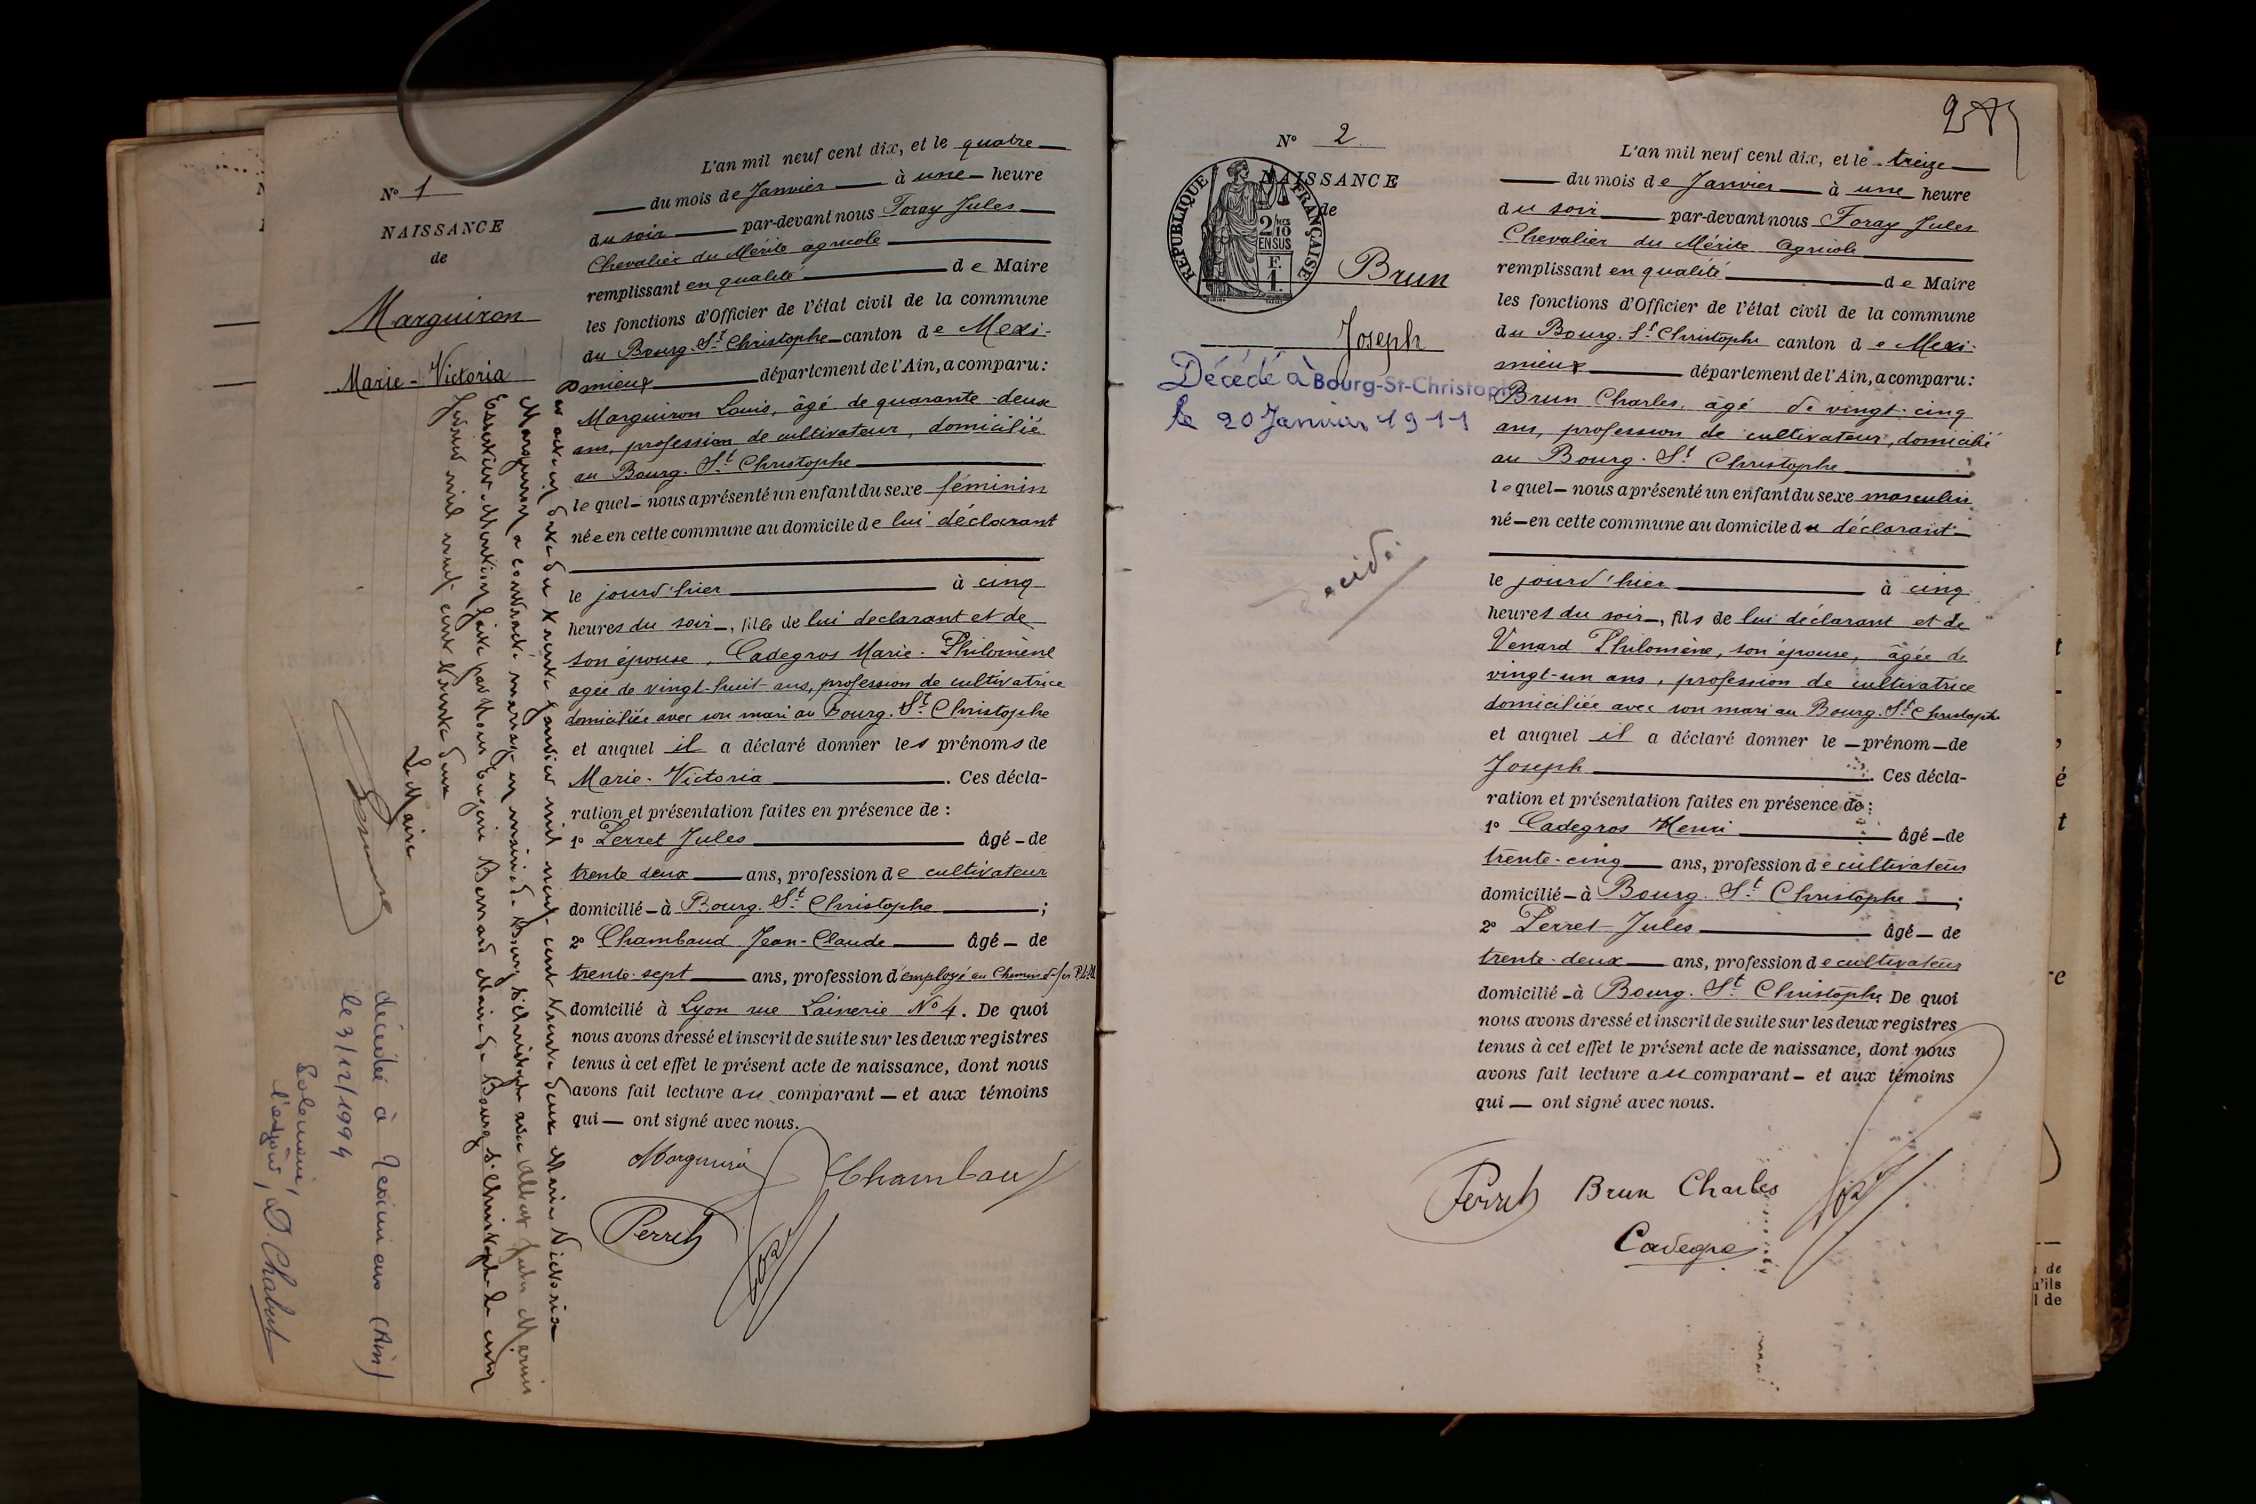 N° 1
NAISSANCE
de
Marguiron
Marie-Victoria
L'an mil neuf cent dix, et le quatre
du mois de Janvier à une heure
du soir par-devant nous Foray Jules
Chevalier du Mérite agricole
remplissant en qualité de Maire
les fonctions d'Officier de l'état civil de la commune
du Bourg-St Christophe canton de Mexi-
mieux département de l'Ain, a comparu:
Marguiron Louis, âgé de quarante-deux
ans, profession de cultivateur, domicilié
au Bourg-St Christophe
lequel nous a présenté un enfant du sexe féminin
née en cette commune au domicile de lui déclarant
le jourd'hier à cinq
heures du soir, fille de lui déclarant et de
son épouse, Cadegros Marie-Philomène
agée de vingt-huit ans, profession de cultivatrice
domiciliée avec son mari au Bourg-St Christophe
et auquel il a déclaré donner les prénoms de
Marie-Victoria. Ces décla-
ration et présentation faites en présence de :
1° Perret Jules âgé de
trente deux ans, profession de cultivateur
domicilié à Bourg-St Christophe ;
2° Chambaud Jean-Claude âgé de
trente-sept ans, profession d'employé au Chemin de fer P.L.M.
domicilié à Lyon rue Lainerie N° 4. De quoi
nous avons dressé et inscrit de suite sur les deux registres
tenus à cet effet le présent acte de naissance, dont nous
avons fait lecture au comparant et aux témoins
qui ont signé avec nous.
Chambaud
Perret
Par acte en date du trente Janvier mil neuf cent trente deux Marie Victoria
Marguiron a contracté mariage en mairie de Bourg St Christophe avec
Mention faite par Nous Eugène Bernard Maire de Bourg St Christophe le
Février mil neuf cent trente deux
Le Maire
décédée à Meximieux (Ain)
le 3/12/1994
l'adjoint, D. Chabert
N° 2
NAISSANCE
de
RÉPUBLIQUE FRANÇAISE
2/10
EN SUS
F.
1.
Brun
Joseph
Décédé à Bourg-St-Christophe
le 20 Janvier 1911
L'an mil neuf cent dix, et le treize
du mois de Janvier à une heure
du soir par-devant nous Foray Jules
Chevalier du Mérite Agricole
remplissant en qualité de Maire
les fonctions d'Officier de l'état civil de la commune
du Bourg-St Christophe canton de Mexi-
mieux département de l'Ain, a comparu:
Brun Charles, âgé de vingt-cinq
ans, profession de cultivateur, domicilié
au Bourg-St Christophe
lequel nous a présenté un enfant du sexe masculin
né en cette commune au domicile du déclarant
le jourd'hier à cinq
heures du soir, fils de lui déclarant et de
Venard Philomène, son épouse, âgée de
vingt-un ans, profession de cultivatrice
domiciliée avec son mari au Bourg-St Christophe
et auquel il a déclaré donner le prénom de
Joseph. Ces décla-
ration et présentation faites en présence de :
1° Cadegros Henri âgé de
trente-cinq ans, profession de cultivateur
domicilié à Bourg-St Christophe ;
2° Perret Jules âgé de
trente-deux ans, profession de cultivateur
domicilié à Bourg-St Christophe. De quoi
nous avons dressé et inscrit de suite sur les deux registres
tenus à cet effet le présent acte de naissance, dont nous
avons fait lecture au comparant et aux témoins
qui ont signé avec nous.
Perret Brun Charles